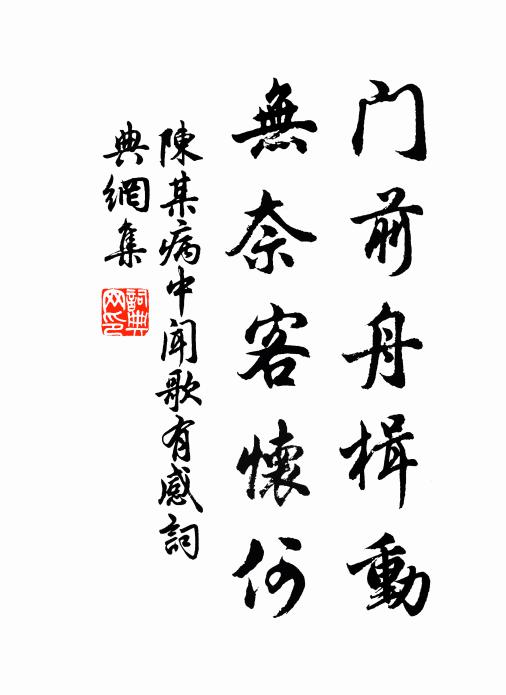 门前舟楫動
無奈客懷何
陳某病中聞歌有感詞
典網集
詞典
网印